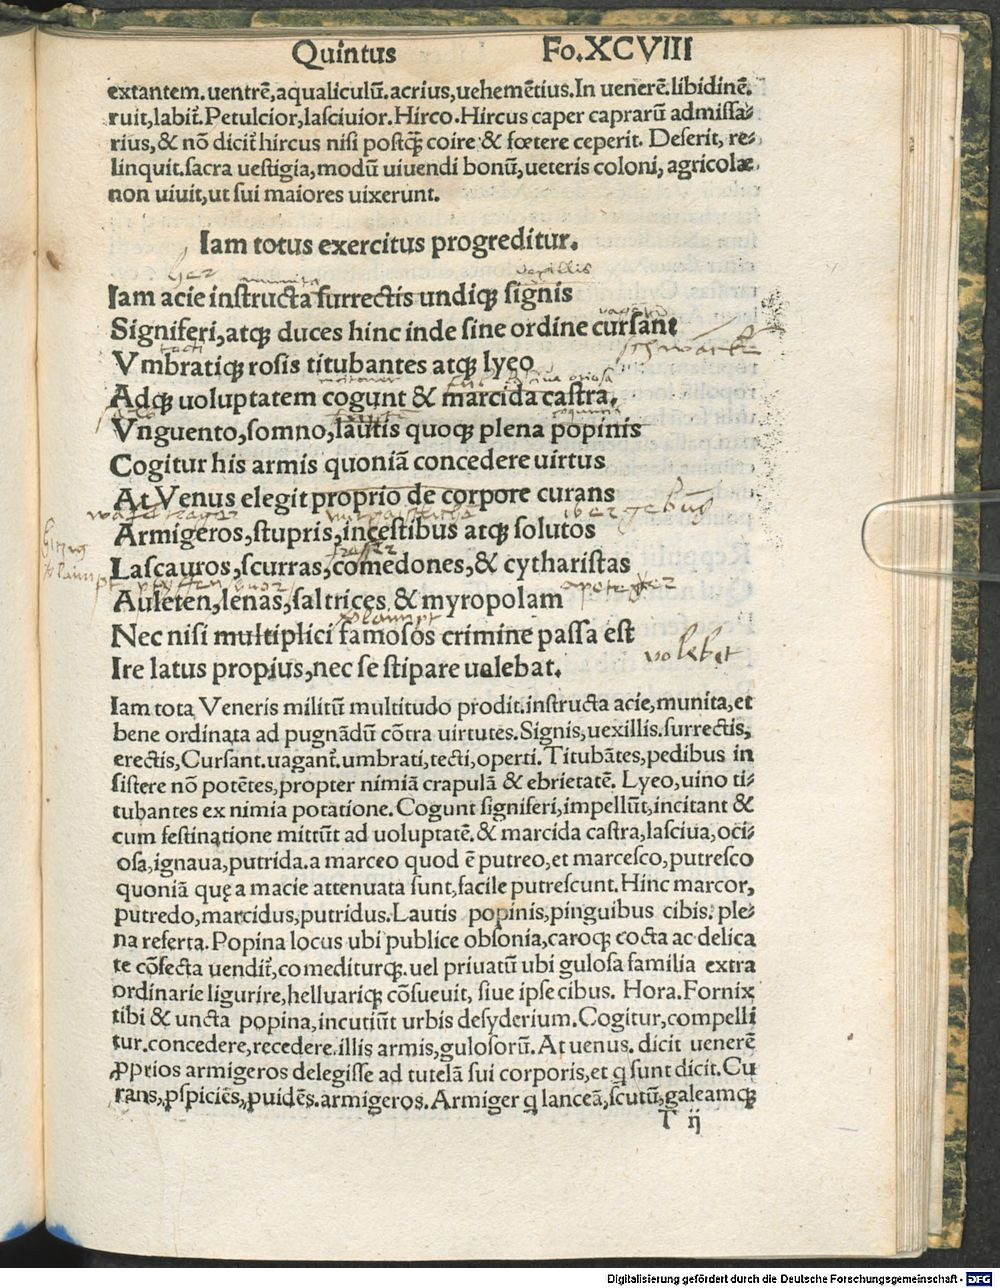 Quintus Fo.XCVIII
extantem. uentrē, aqualiculū. acrius, uehemētius. In uenerē. libidinē.
ruit, labit̄. Petulcior, lasciuior. Hirco. Hircus caper caprarū admissa-
rius, & nō dicit̄ hircus nisi postq̄ coire & fœtere ceperit. Deserit, re-
linquit. sacra uestigia, modū uiuendi bonū, ueteris coloni, agricolæ
non uiuit, ut sui maiores uixerunt.
Iam totus exercitus progreditur.
her munita vexillis
Iam acie instructa surrectis undiqꝫ signis
Signiferi, atqꝫ duces hinc inde sine ordine cursant
tecti
Vmbratiqꝫ rosis titubantes atqꝫ lyeo
Adqꝫ uoluptatem cogunt & marcida castra,
Vnguento, somno, lautis quoqꝫ plena popinis
Cogitur his armis quoniā concedere uirtus
At Venus elegit proprio de corpore curans
Armigeros, stupris, incestibus atqꝫ solutos
fresser
Lascauros, scurras, comedones, & cytharistas
Auleten, lenas, saltrices & myropolam
Nec nisi multiplici famosos crimine passa est
Ire latus propius, nec se stipare ualebat.
volebat
Iam tota Veneris militū multitudo prodit. instructa acie, munita, et
bene ordinata ad pugnādū cōtra uirtutes. Signis, uexillis. surrectis,
erectis, Cursant. uagant̄. umbrati, tecti, operti. Titubātes, pedibus in
sistere nō potētes, propter nimiā crapulā & ebrietatē. Lyeo, uino ti-
tubantes ex nimia potatione. Cogunt signiferi, impellūt, incitant &
cum festinatione mittūt ad uoluptatē. & marcida castra, lasciua, oci-
osa, ignaua, putrida. a marceo quod ē putreo, et marcesco, putresco
quoniā quę a macie attenuata sunt, facile putrescunt. Hinc marcor,
putredo, marcidus, putridus. Lautis popinis, pinguibus cibis. ple-
na referta. Popina locus ubi publice obsonia, caroqꝫ cocta ac delica
te cōfecta uendit̄, comediturqꝫ. uel priuatū ubi gulosa familia extra
ordinarie ligurire, helluariqꝫ cōsueuit, siue ipse cibus. Hora. Fornix
tibi & uncta popina, incutiūt urbis desyderium. Cogitur, compelli
tur. concedere, recedere. illis armis, gulosorū. At uenus. dicit uenerē
ꝓprios armigeros delegisse ad tutelā sui corporis, et q sunt dicit. Cu
rans, ꝓspiciēs, ꝓuidēs. armigeros. Armiger q lanceā, scutū, galeamqꝫ
T ij
Digitalisierung gefördert durch die Deutsche Forschungsgemeinschaft - DFG